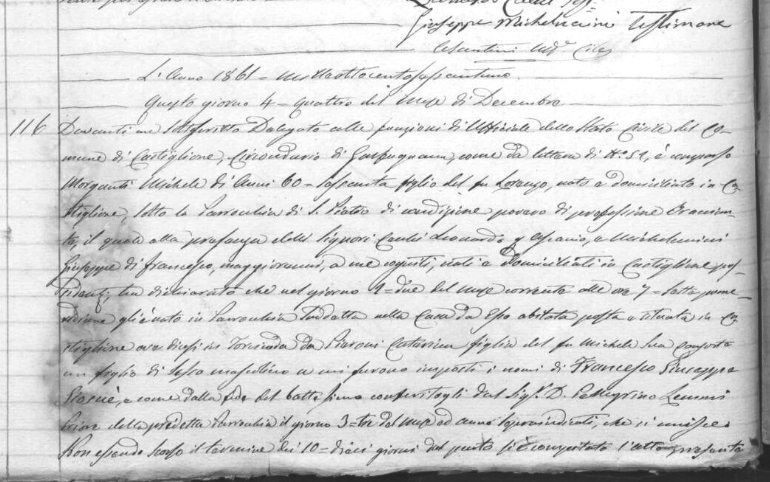 Giuseppe Michelucini Testimone
L'Anno 1861 = Milleottocentosessantuno
Questo giorno 4 = Quattro del mese di Decembre
116 Davanti me sottoscritto Delegato alle funzioni di Uffiziale dello Stato Civile del Co-
mune di Castiglione, Circondario di come da lettera di N.º 51, è comparso
Morganti Michele di Anni 60 = Sessanta figlio del fu Lorenzo, nato e domiciliato in Ca-
stiglione, sotto la Parrochia di S. Pietro di condizione povero di professione
il quale alla presenza delli Signori Leonardo q. Ascanio, e Michelucini
Giuseppe di Francesco, maggiorenni, a me cogniti, nati e domiciliati in Castiglione pos-
sidenti, ha dichiarato che nel giorno 2 = due del mese corrente alle ore 7 = Sette pome-
ridiane gli è nato in Parrochia suddetta nella Casa da esso abitata posta e situata in Ca-
stiglione ove dicesi in da Pieroni Catterina figlia del fu Michele sua consorte
un figlio di sesso mascolino a cui furono imposti i nomi di Francesco Giuseppe
Giosuè, e come dalla fede del battesimo conferitogli dal Sig.r D. Pellegrino Lemmi
della predetta Parrochia il giorno 3 = tre del mese ed anno sopraindicati, che si unisce.
Non essendo scorso il termine dei 10 = dieci giorni dal parto si è computato l'atto presente